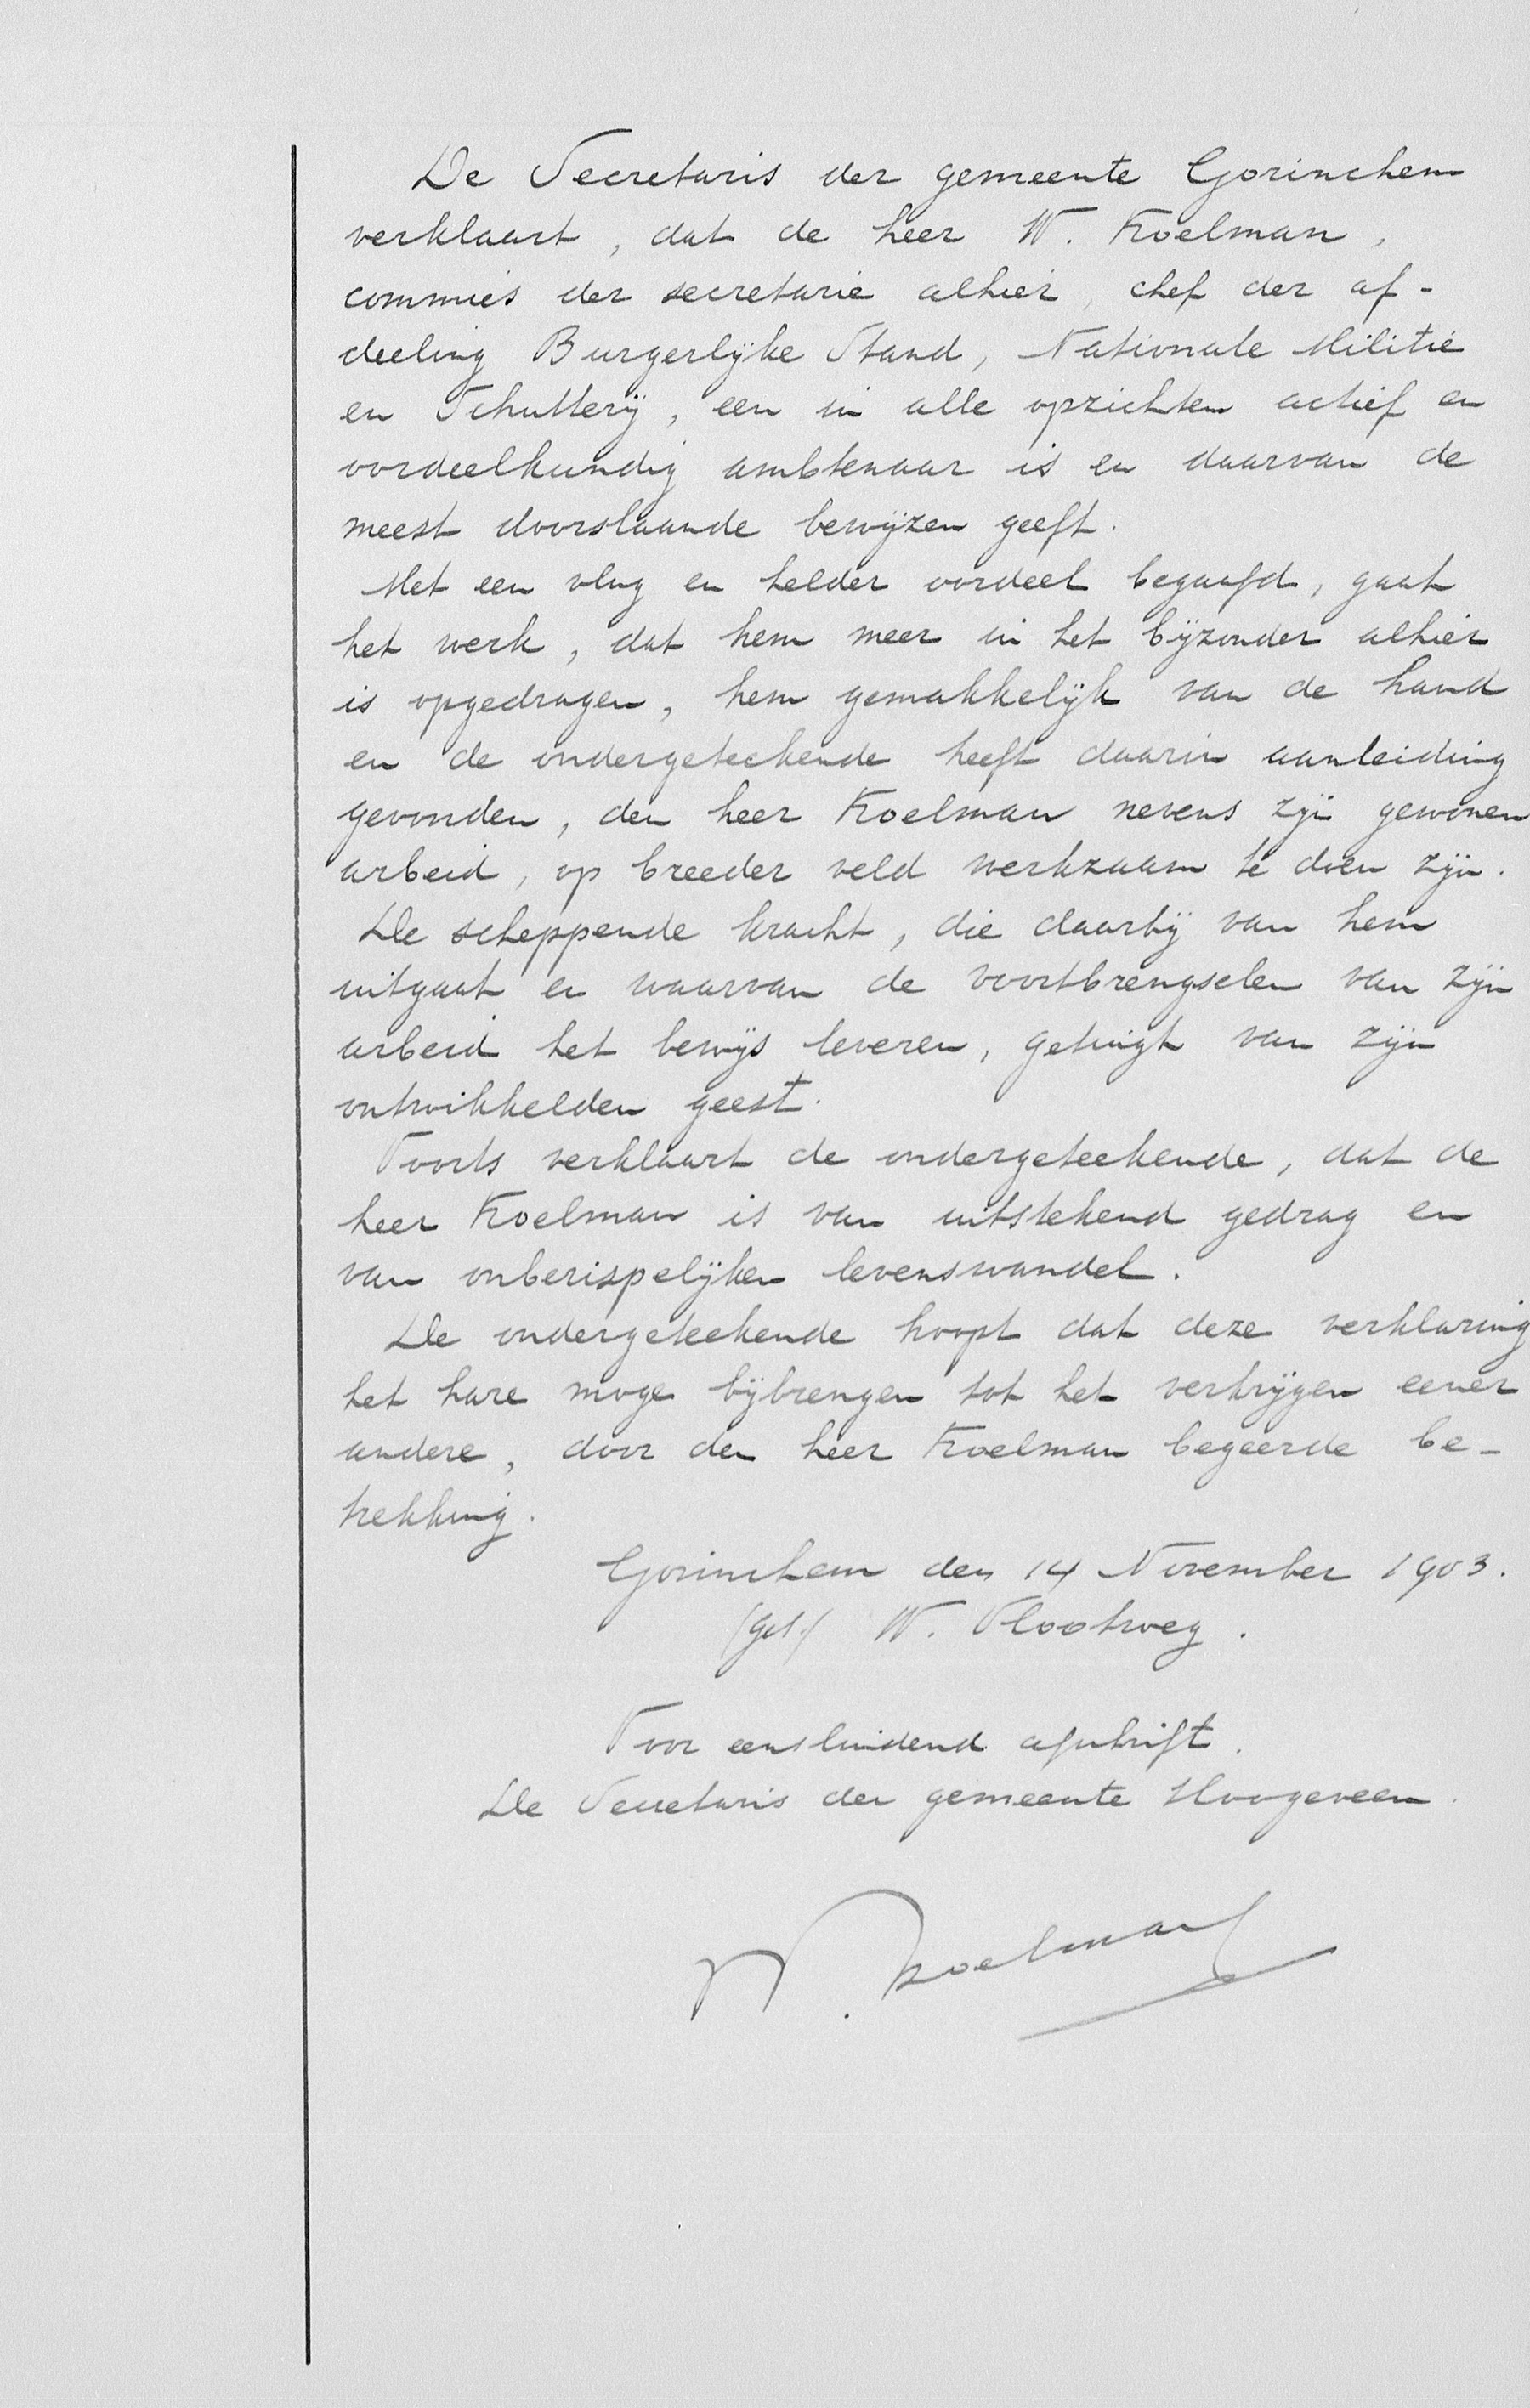 De Secretaris der gemeente Gorinchem
verklaart, dat de heer W. Koelman,
commies der secretarie alhier, chef der af-
deeling Burgerlijke Stand, Nationale Militie
en Schutterij, een in alle opzichten actief en
oordeelkundig ambtenaar is en daarvan de
meest doorslaande bewijzen geeft.
Met een vlug en helder oordeel begaafd, gaat
het werk, dat hem meer in het bijzonder alhier
is opgedragen, hem gemakkelijk van de hand
en de ondergeteekende heeft daarin aanleiding
gevonden, den heer Koelman nevens zijn gewonen
arbeid, op breeder veld werkzaam te doen zijn.
De scheppende kracht, die daarbij van hem
uitgaat en waarvan de voortbrengselen van zijn
arbeid het bewijs leveren, getuigt van zijn
ontwikkelden geest.
Voorts verklaart de ondergeteekende, dat de
heer Koelman is van uitstekend gedrag en
van onberispelijken levenswandel.
De ondergeteekende hoopt dat deze verklaring
het hare moge bijbrengen tot het verkrijgen eener
andere, door den heer Koelman begeerde be-
trekking.
Gorinchem den 14 November 1903.
(get.) W. Vlootweg.
Voor eensluidend afschrift.
De Secretaris der gemeente Hoogeveen.
W. Koelman